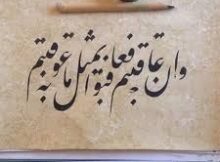 وان عاقبتم فعاقبوا بمثل ما عوقبتم به